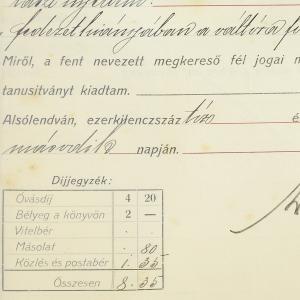 fedezethiányában a váltóra
Miről, a fent nevezett megkereső fél jogai
tanusitványt kiadtam.
Alsólendván, ezerkilenczszáz tíz
második napján.
Dijjegyzék:
Óvásdíj 4 20
Bélyeg a könyvön 2 —
Vitelbér . .
Másolat . 80
Közlés és postabér 1. 35
Összesen 8. 35